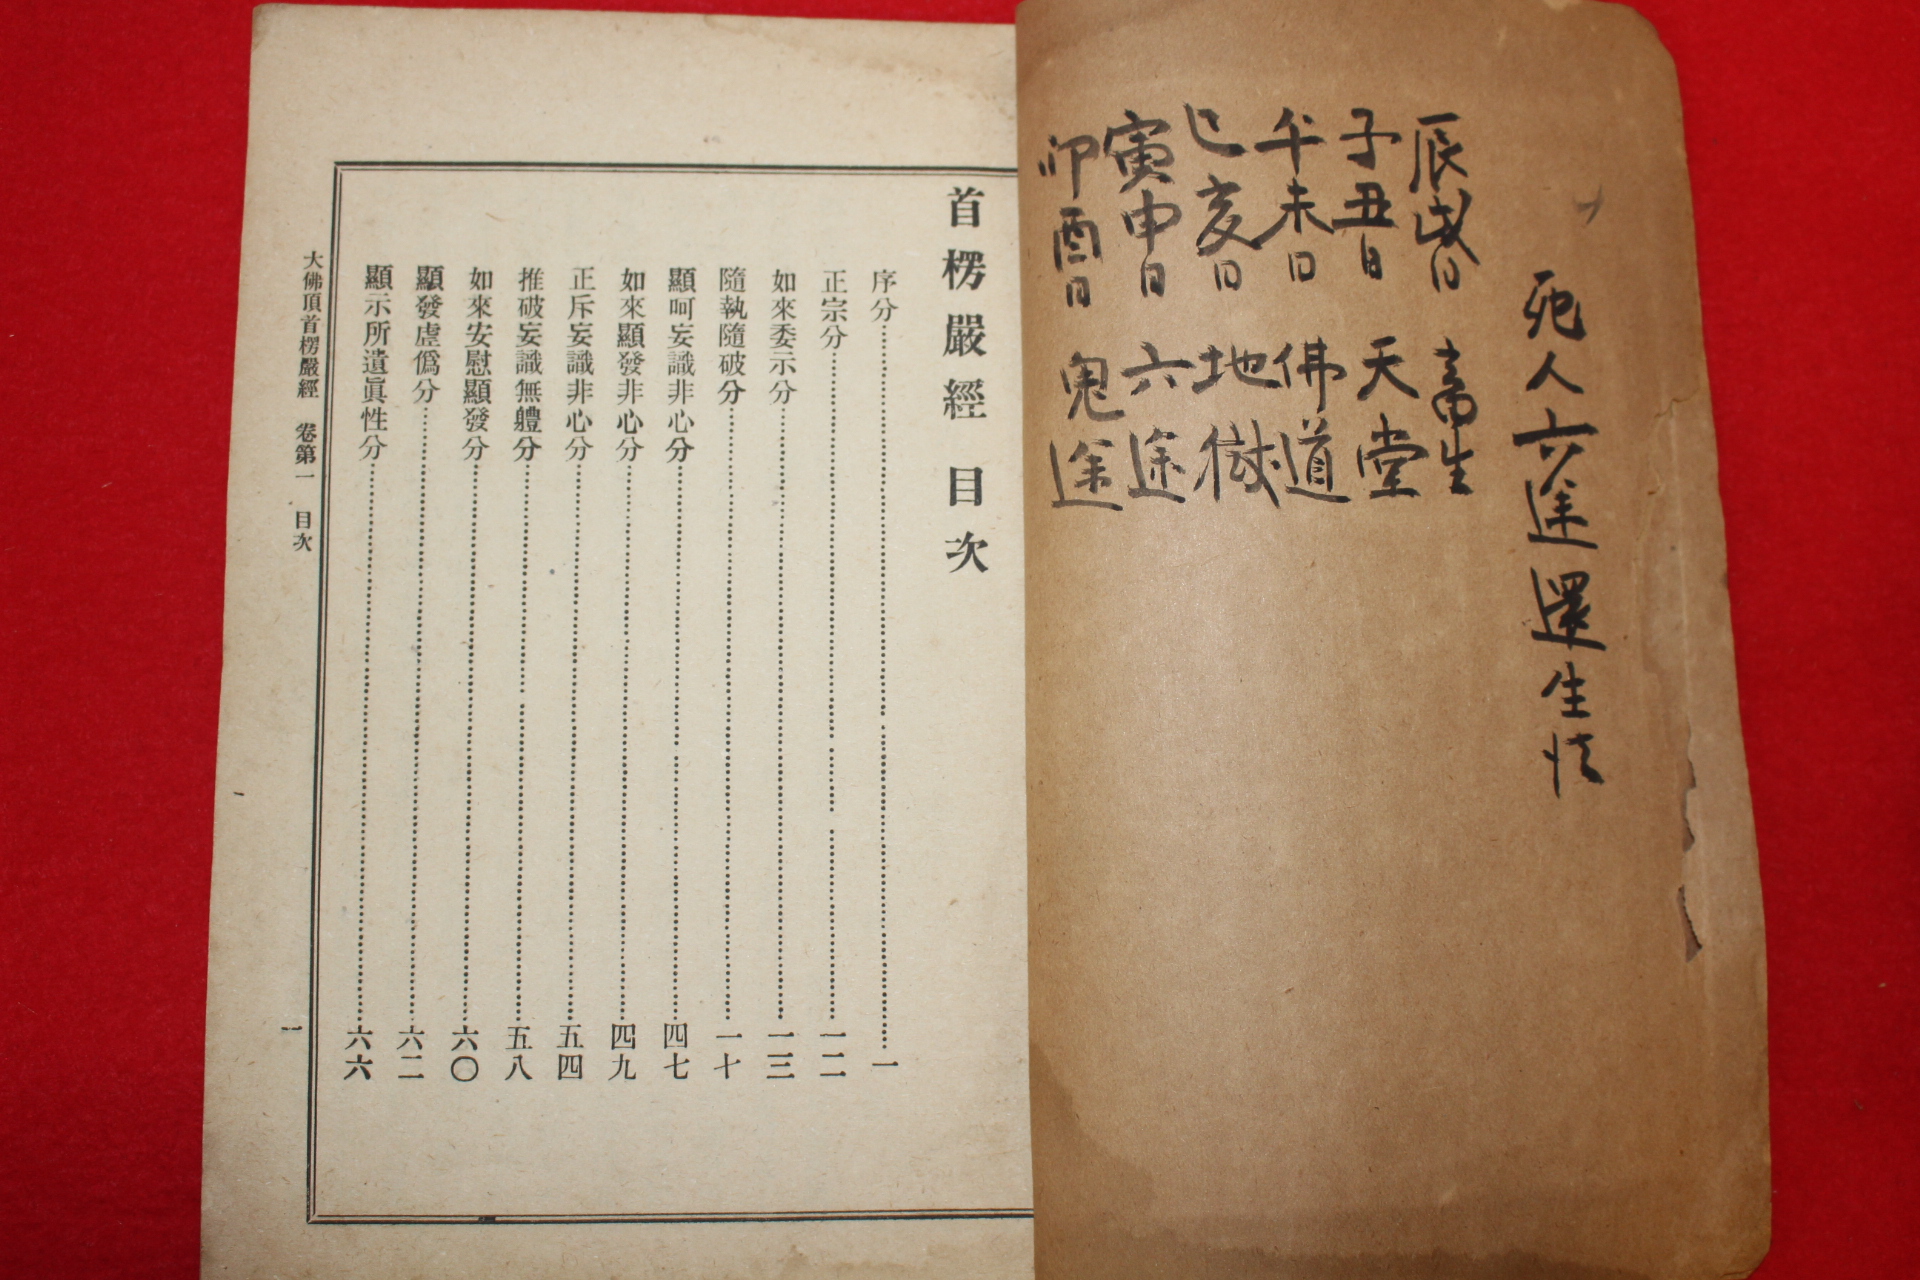 死人六途還生法
辰戌日 畜生
子丑日 天堂
午未日 佛道
巳亥日 地獄
寅申日 六途
卯酉日 鬼途
首楞嚴經 目次
序分 一
正宗分 一二
如來委示分 一三
隨執隨破分 一十
顯呵妄識非心分 四七
如來顯發非心分 四九
正斥妄識非心分 五四
推破妄識無軆分 五八
如來安慰顯發分 六〇
顯發虛僞分 六二
顯示所遺眞性分 六六
大佛頂首楞嚴經 卷第一 目次 一